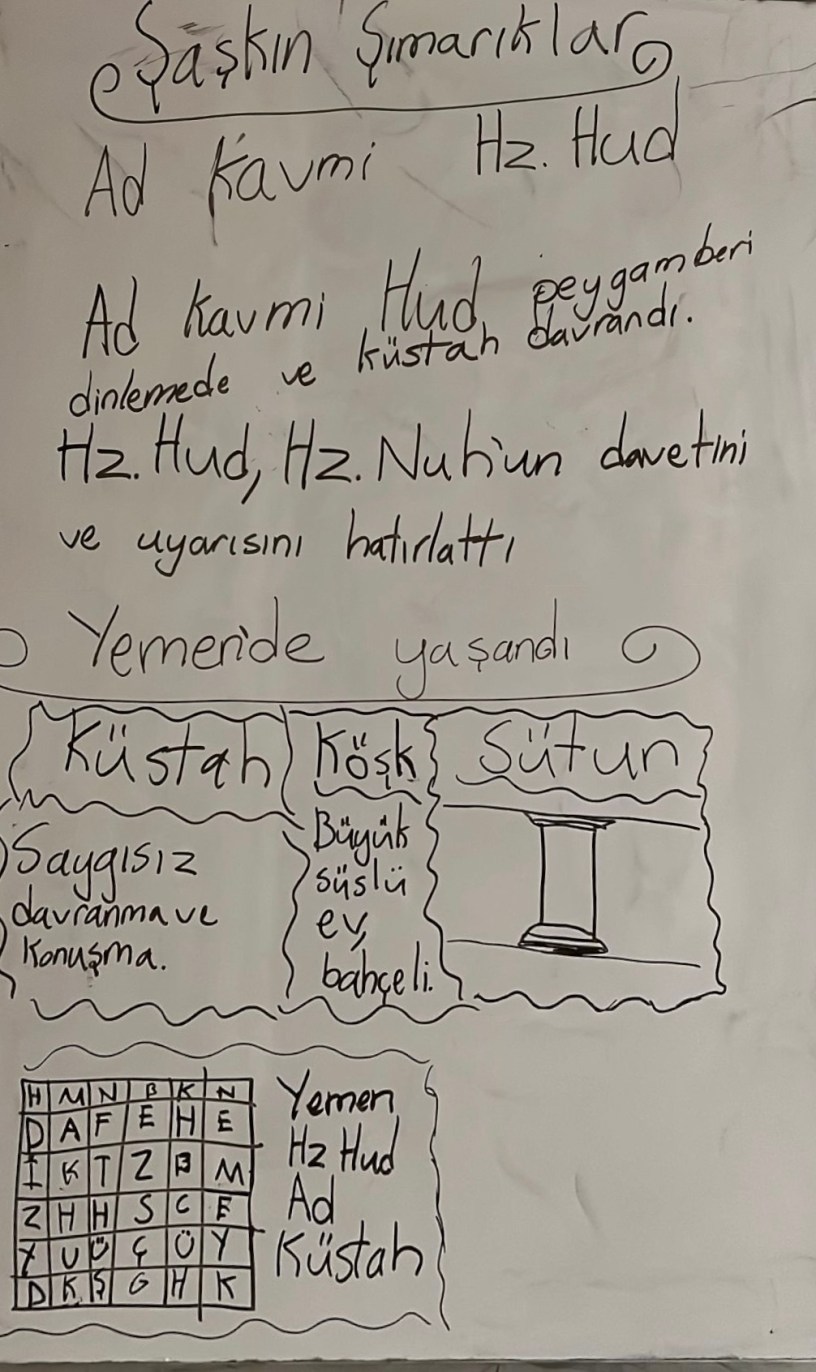 Şaşkın Şımarıklar
Ad Kavmi Hz. Hud
Ad Kavmi Hud peygamberi
dinlemede ve küstah davrandı.
Hz. Hud, Hz. Nuh'un davetini
ve uyarısını hatırlattı
Yemen'de yaşandı
Küstah Köşk Sütun
Saygısız
davranma ve
konuşma.
Büyük
süslü
ev,
bahçeli.
H M N B K N
D A F E H E
I K T Z B M
Z H H S C E
Y U Ü Ç Ü Y
D K Ş G H K
Yemen
Hz Hud
Ad
Küstah